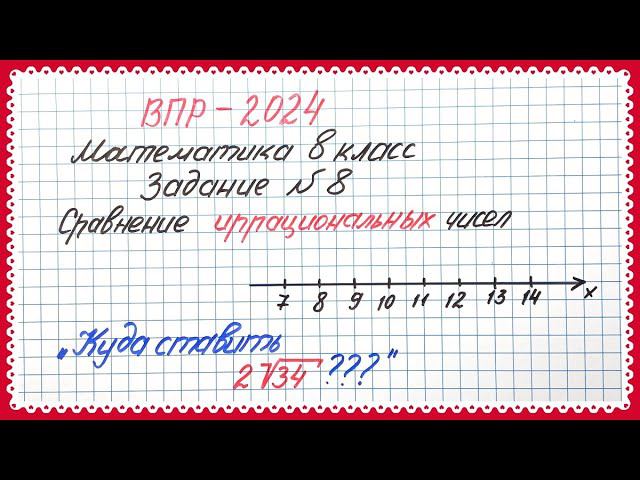 ВПР - 2024
Математика 8 класс
Задание №8
Сравнение иррациональных чисел
7 8 9 10 11 12 13 14 x
"Куда ставить
2√34 ???"